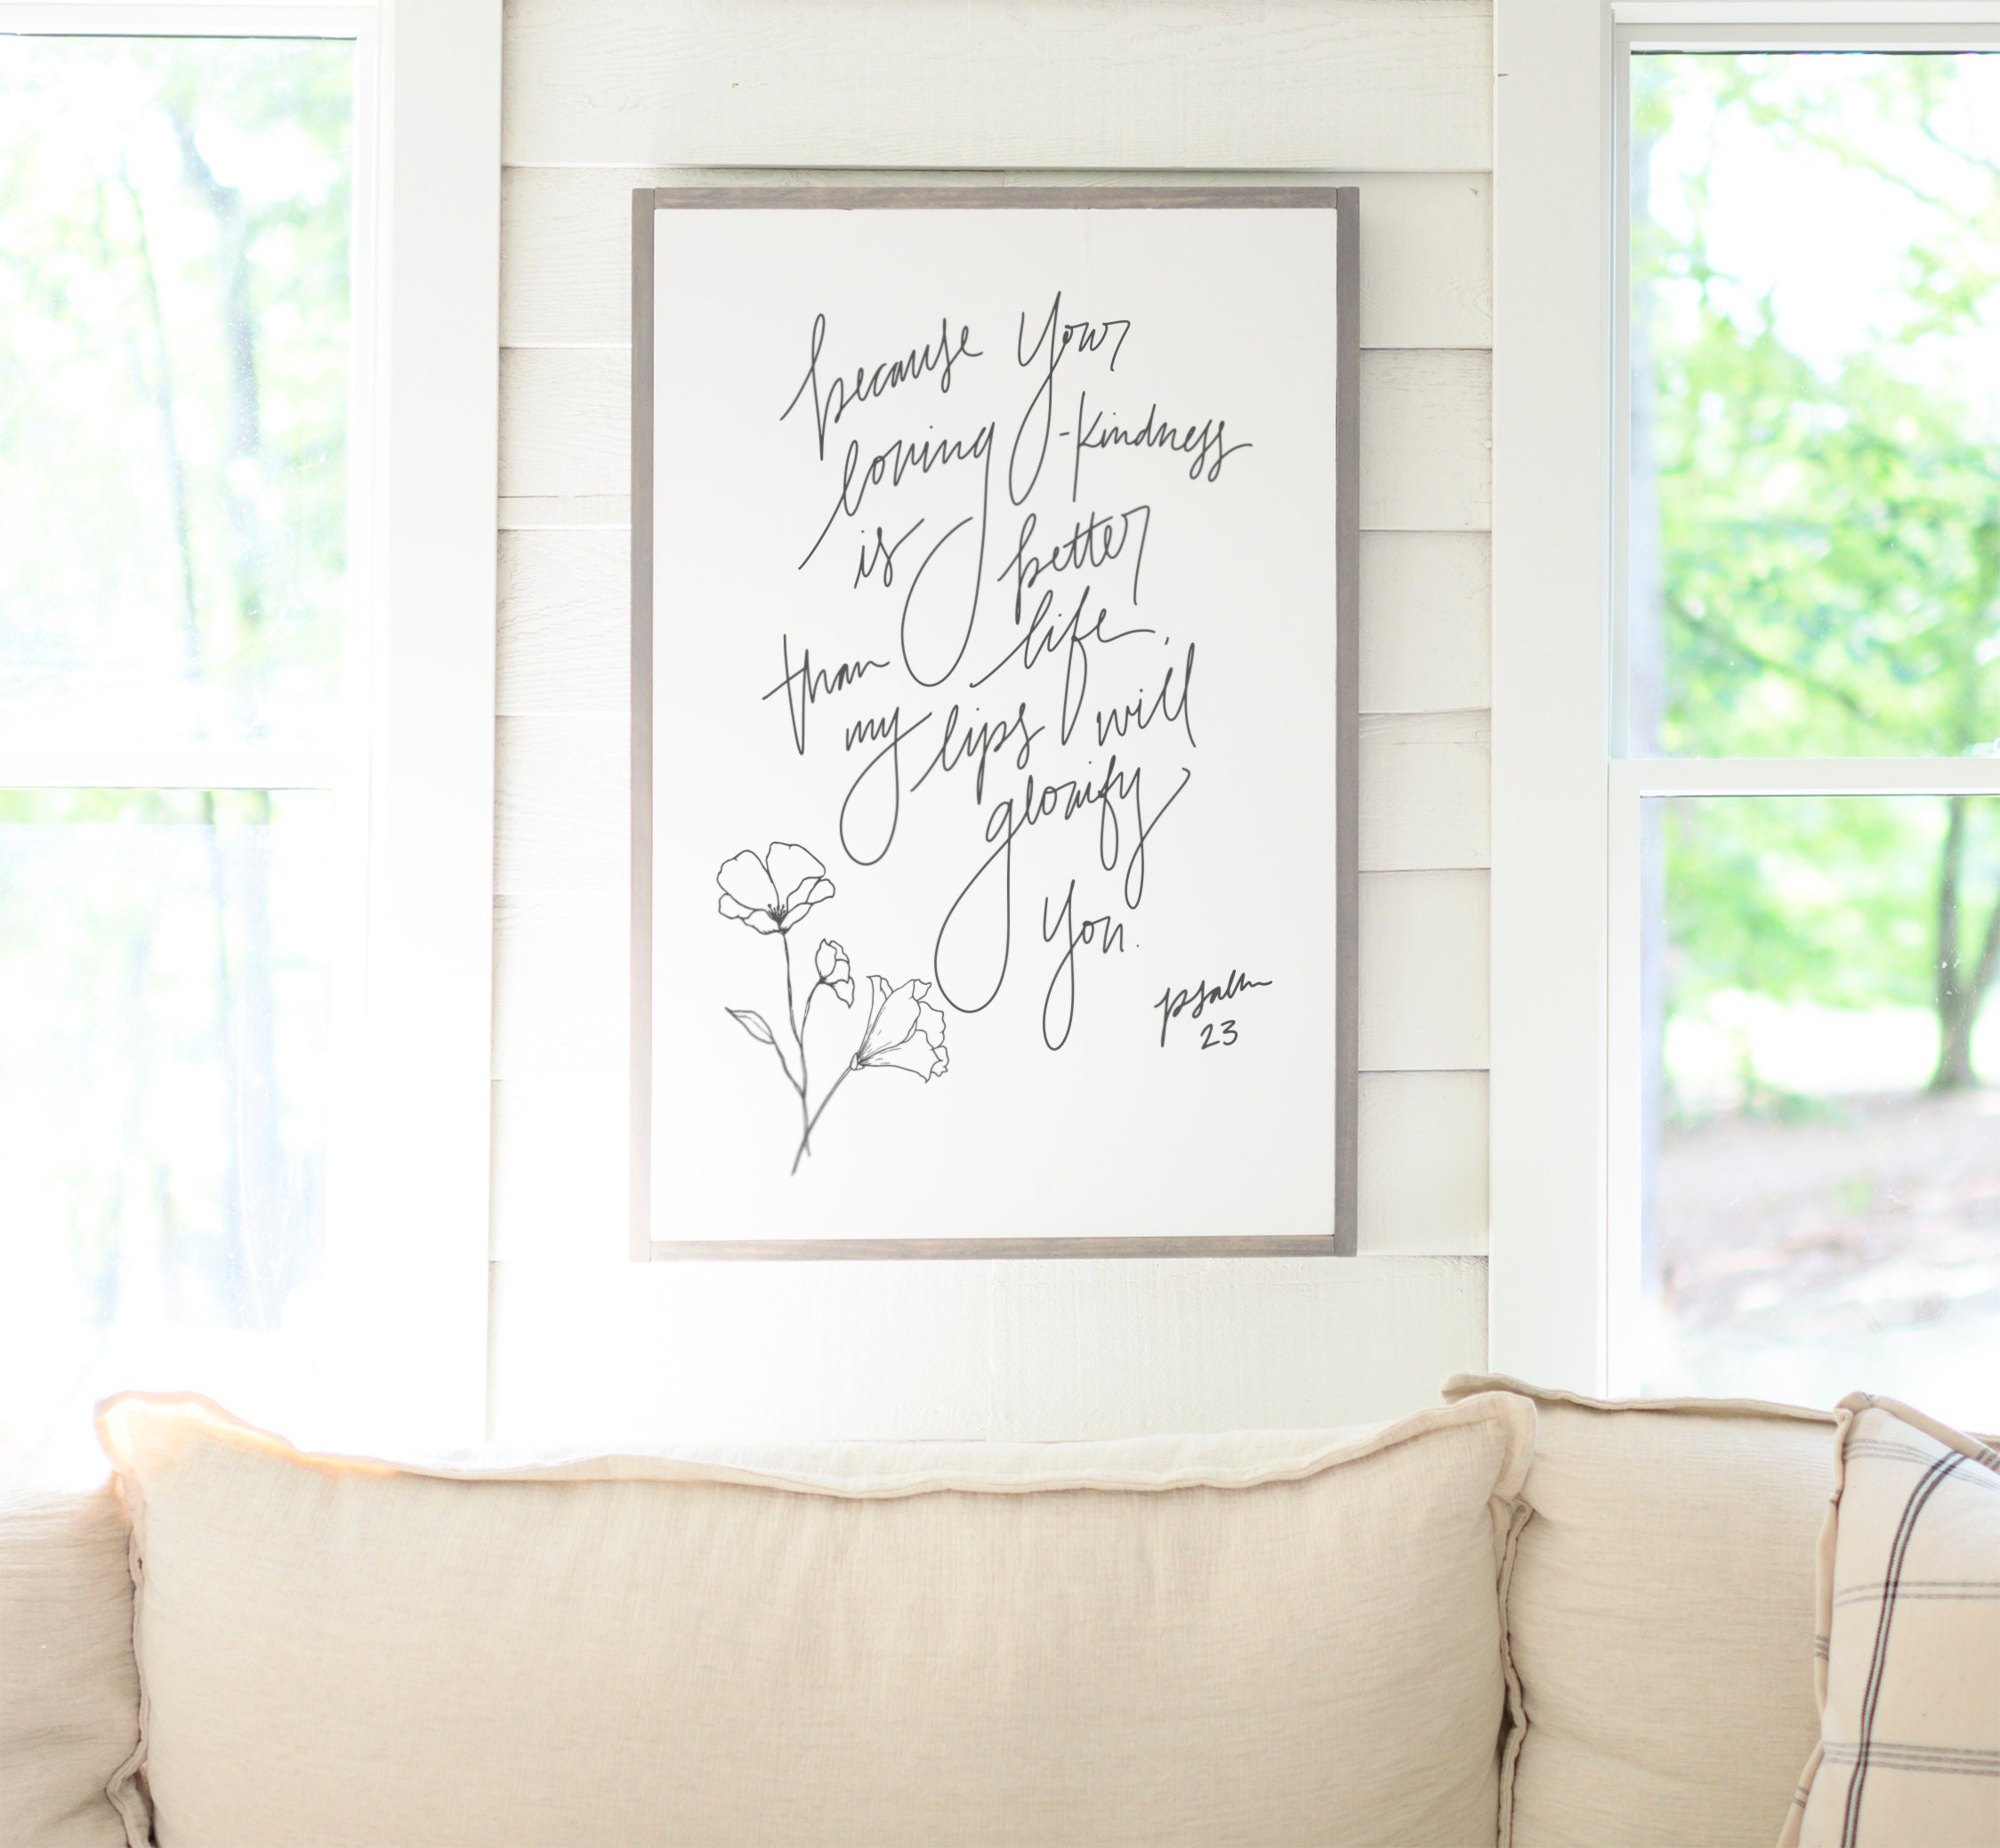 because Your
loving-kindness
is better
than life,
my lips will
glorify
You.
psalm
23